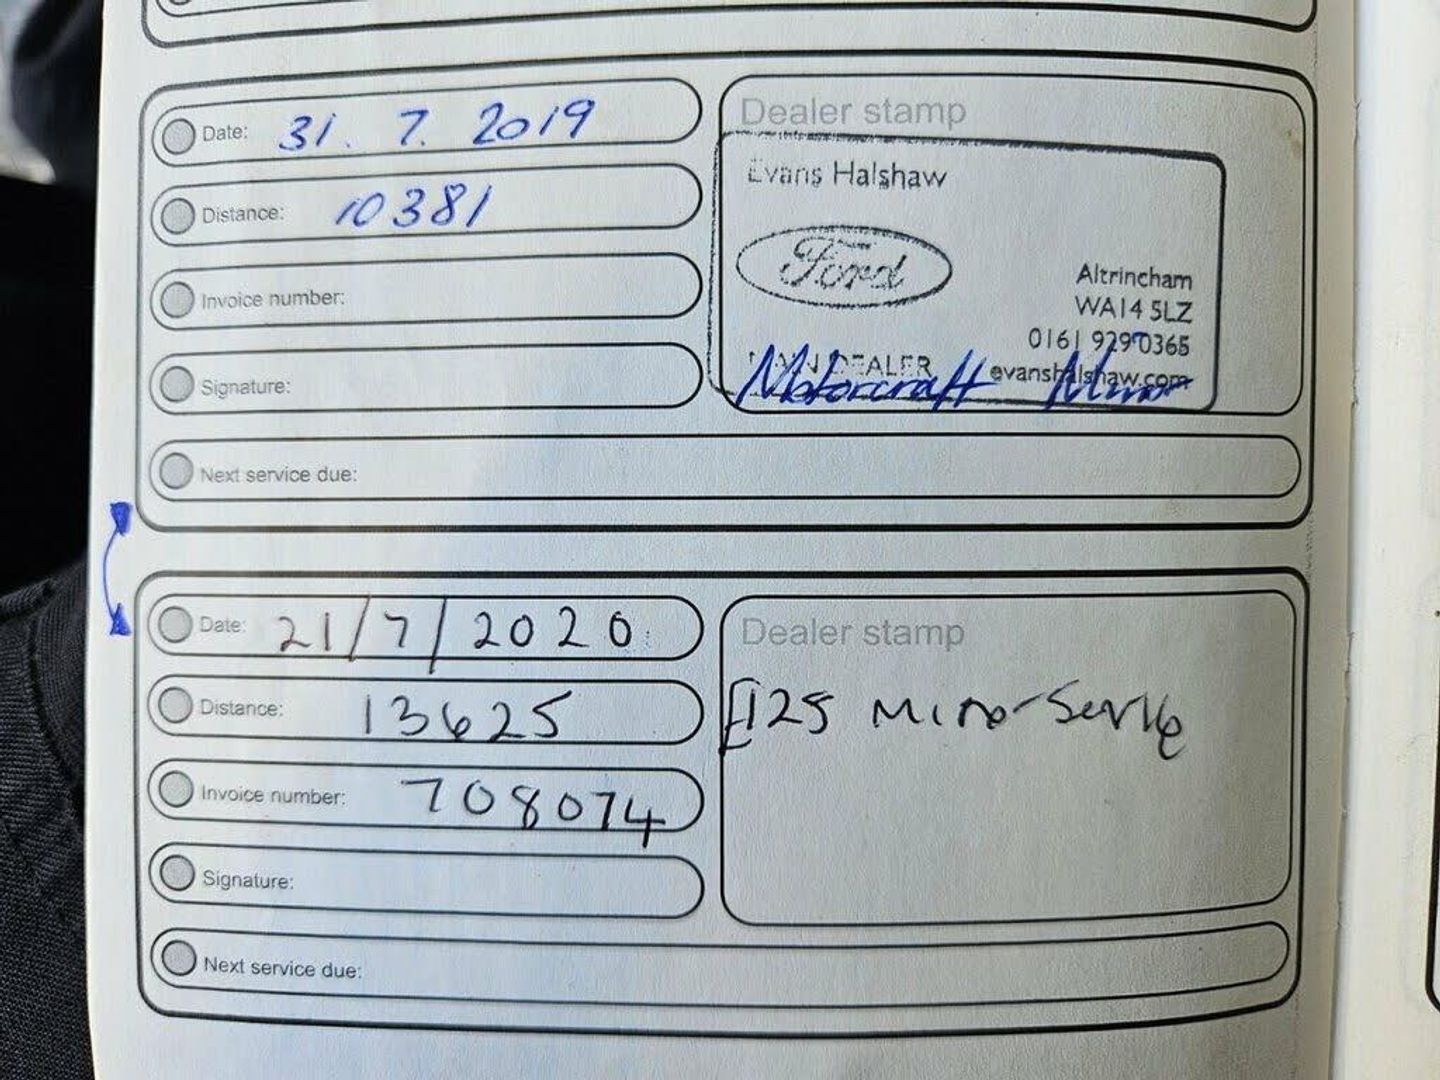 Date: 31. 7. 2019
Distance: 10381
Invoice number:
Signature:
Next service due:
Dealer stamp
Evans Halshaw
Ford
Altrincham
WA14 5LZ
0161 929 0365
MAIN DEALER evanshalshaw.com
Motorcraft Minor
Date: 21/7/2020
Distance: 13625
Invoice number: 708074
Signature:
Next service due:
Dealer stamp
£125 Minor Service